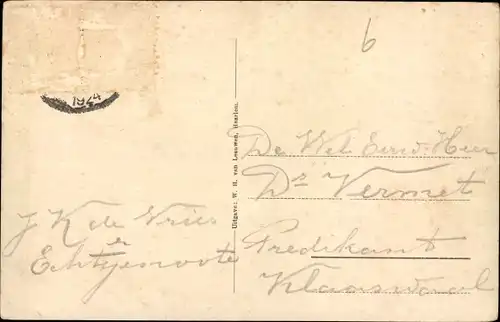 1924
6
De Wel Eerw. Heer
Ds Vermet
Predikant
Klaaswaal
J K de Vries
en
Echtgenoote
Uitgave: W. H. van Leeuwen, Haarlem.